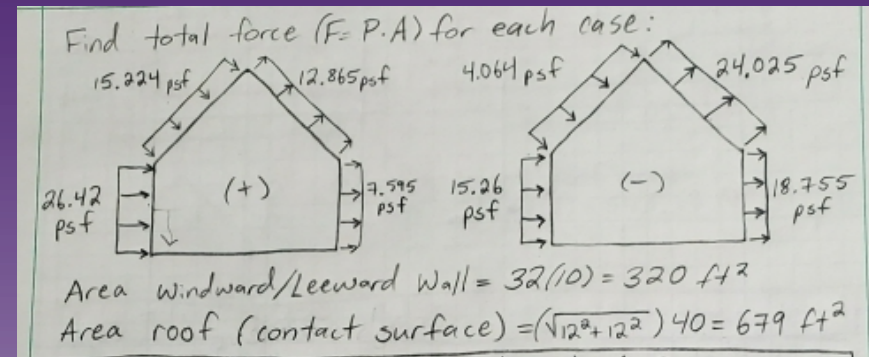 Find total force (F= P.A) for each case:
15.224 psf
12.865 psf
4.064 psf
24.025 psf
26.42 psf
(+)
7.595 psf
15.26 psf
(-)
18.755 psf
Area windward/Leeward Wall = 32(10) = 320 ft²
Area roof (contact surface) = (√12²+12²) 40 = 679 ft²